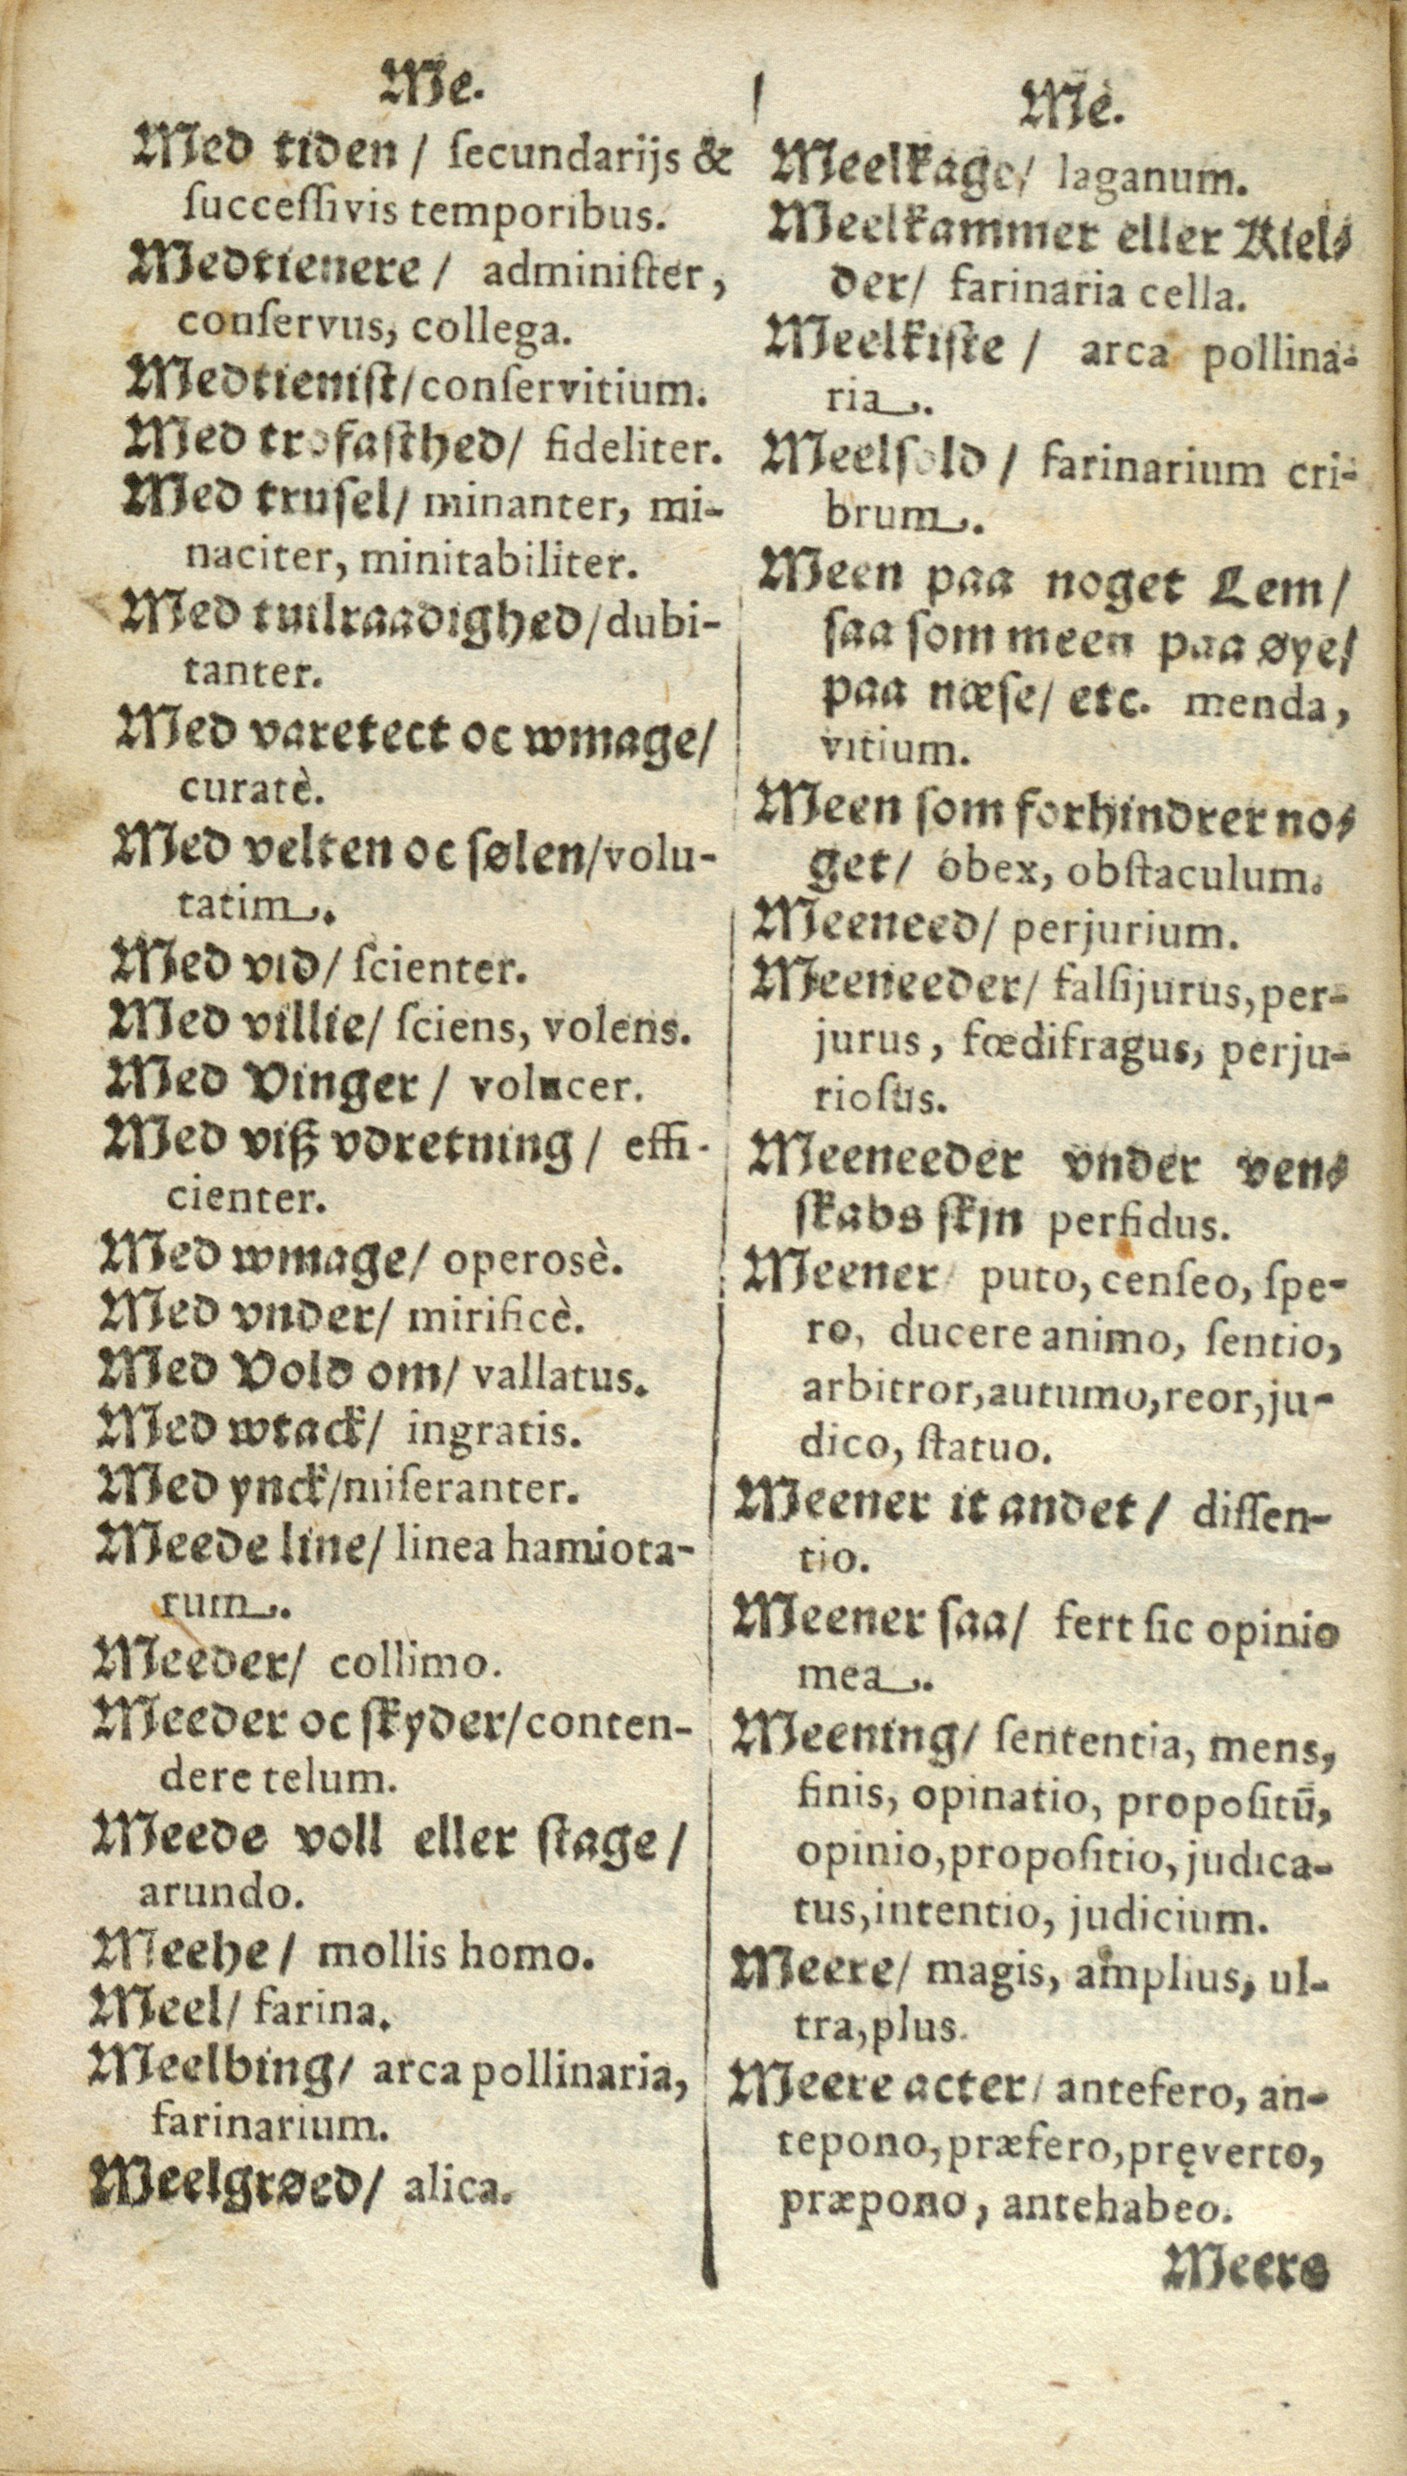 Me.
Med tiden / ſecundarijs &
ſucceſſivis temporibus.
Medtienere / adminiſter,
conſervus, collega.
Medtieniſt/conſervitium.
Med trofaſthed/ fideliter.
Med truſel/ minanter, mi-
naciter, minitabiliter.
Med tuilraadighed/dubi-
tanter.
Med varetect oc wmage/
curatè.
Med velten oc ſølen/volu-
tatim.
Med vid/ ſcienter.
Med villie/ ſciens, volens.
Med Vinger / volucer.
Med viß vdretning / effi-
cienter.
Med wmage/ operosè.
Med vnder/ mirificè.
Med Vold om/ vallatus.
Med wtack/ ingratis.
Med ynck/miſeranter.
Meede line/ linea hamiota-
rum.
Meeder/ collimo.
Meeder oc ſkyder/conten-
dere telum.
Meede voll eller ſtage/
arundo.
Meehe / mollis homo.
Meel/ farina.
Meelbing/ arca pollinaria,
farinarium.
Meelgrøed/ alica.
Me.
Meelkage/ laganum.
Meelkammer eller Kiel-
der/ farinaria cella.
Meelkiſte / arca pollina-
ria.
Meelſold / farinarium cri-
brum.
Meen paa noget Lem/
ſaa ſom meen paa øye/
paa næſe/ etc. menda,
vitium.
Meen ſom forhindrer no-
get/ obex, obſtaculum.
Meeneed/ perjurium.
Meeneeder/ falſijurus, per-
jurus, fœdifragus, perju-
rioſus.
Meeneeder vnder ven-
ſkabs ſkjn perfidus.
Meener/ puto, cenſeo, ſpe-
ro, ducere animo, ſentio,
arbitror, autumo, reor, ju-
dico, ſtatuo.
Meener it andet / diſſen-
tio.
Meener ſaa/ fert ſic opinio
mea.
Meening/ ſententia, mens,
finis, opinatio, propoſitū,
opinio, propoſitio, judica-
tus, intentio, judicium.
Meere/ magis, amplius, ul-
tra, plus.
Meere acter/ antefero, an-
tepono, præfero, pręverto,
præpono, antehabeo.
Meere